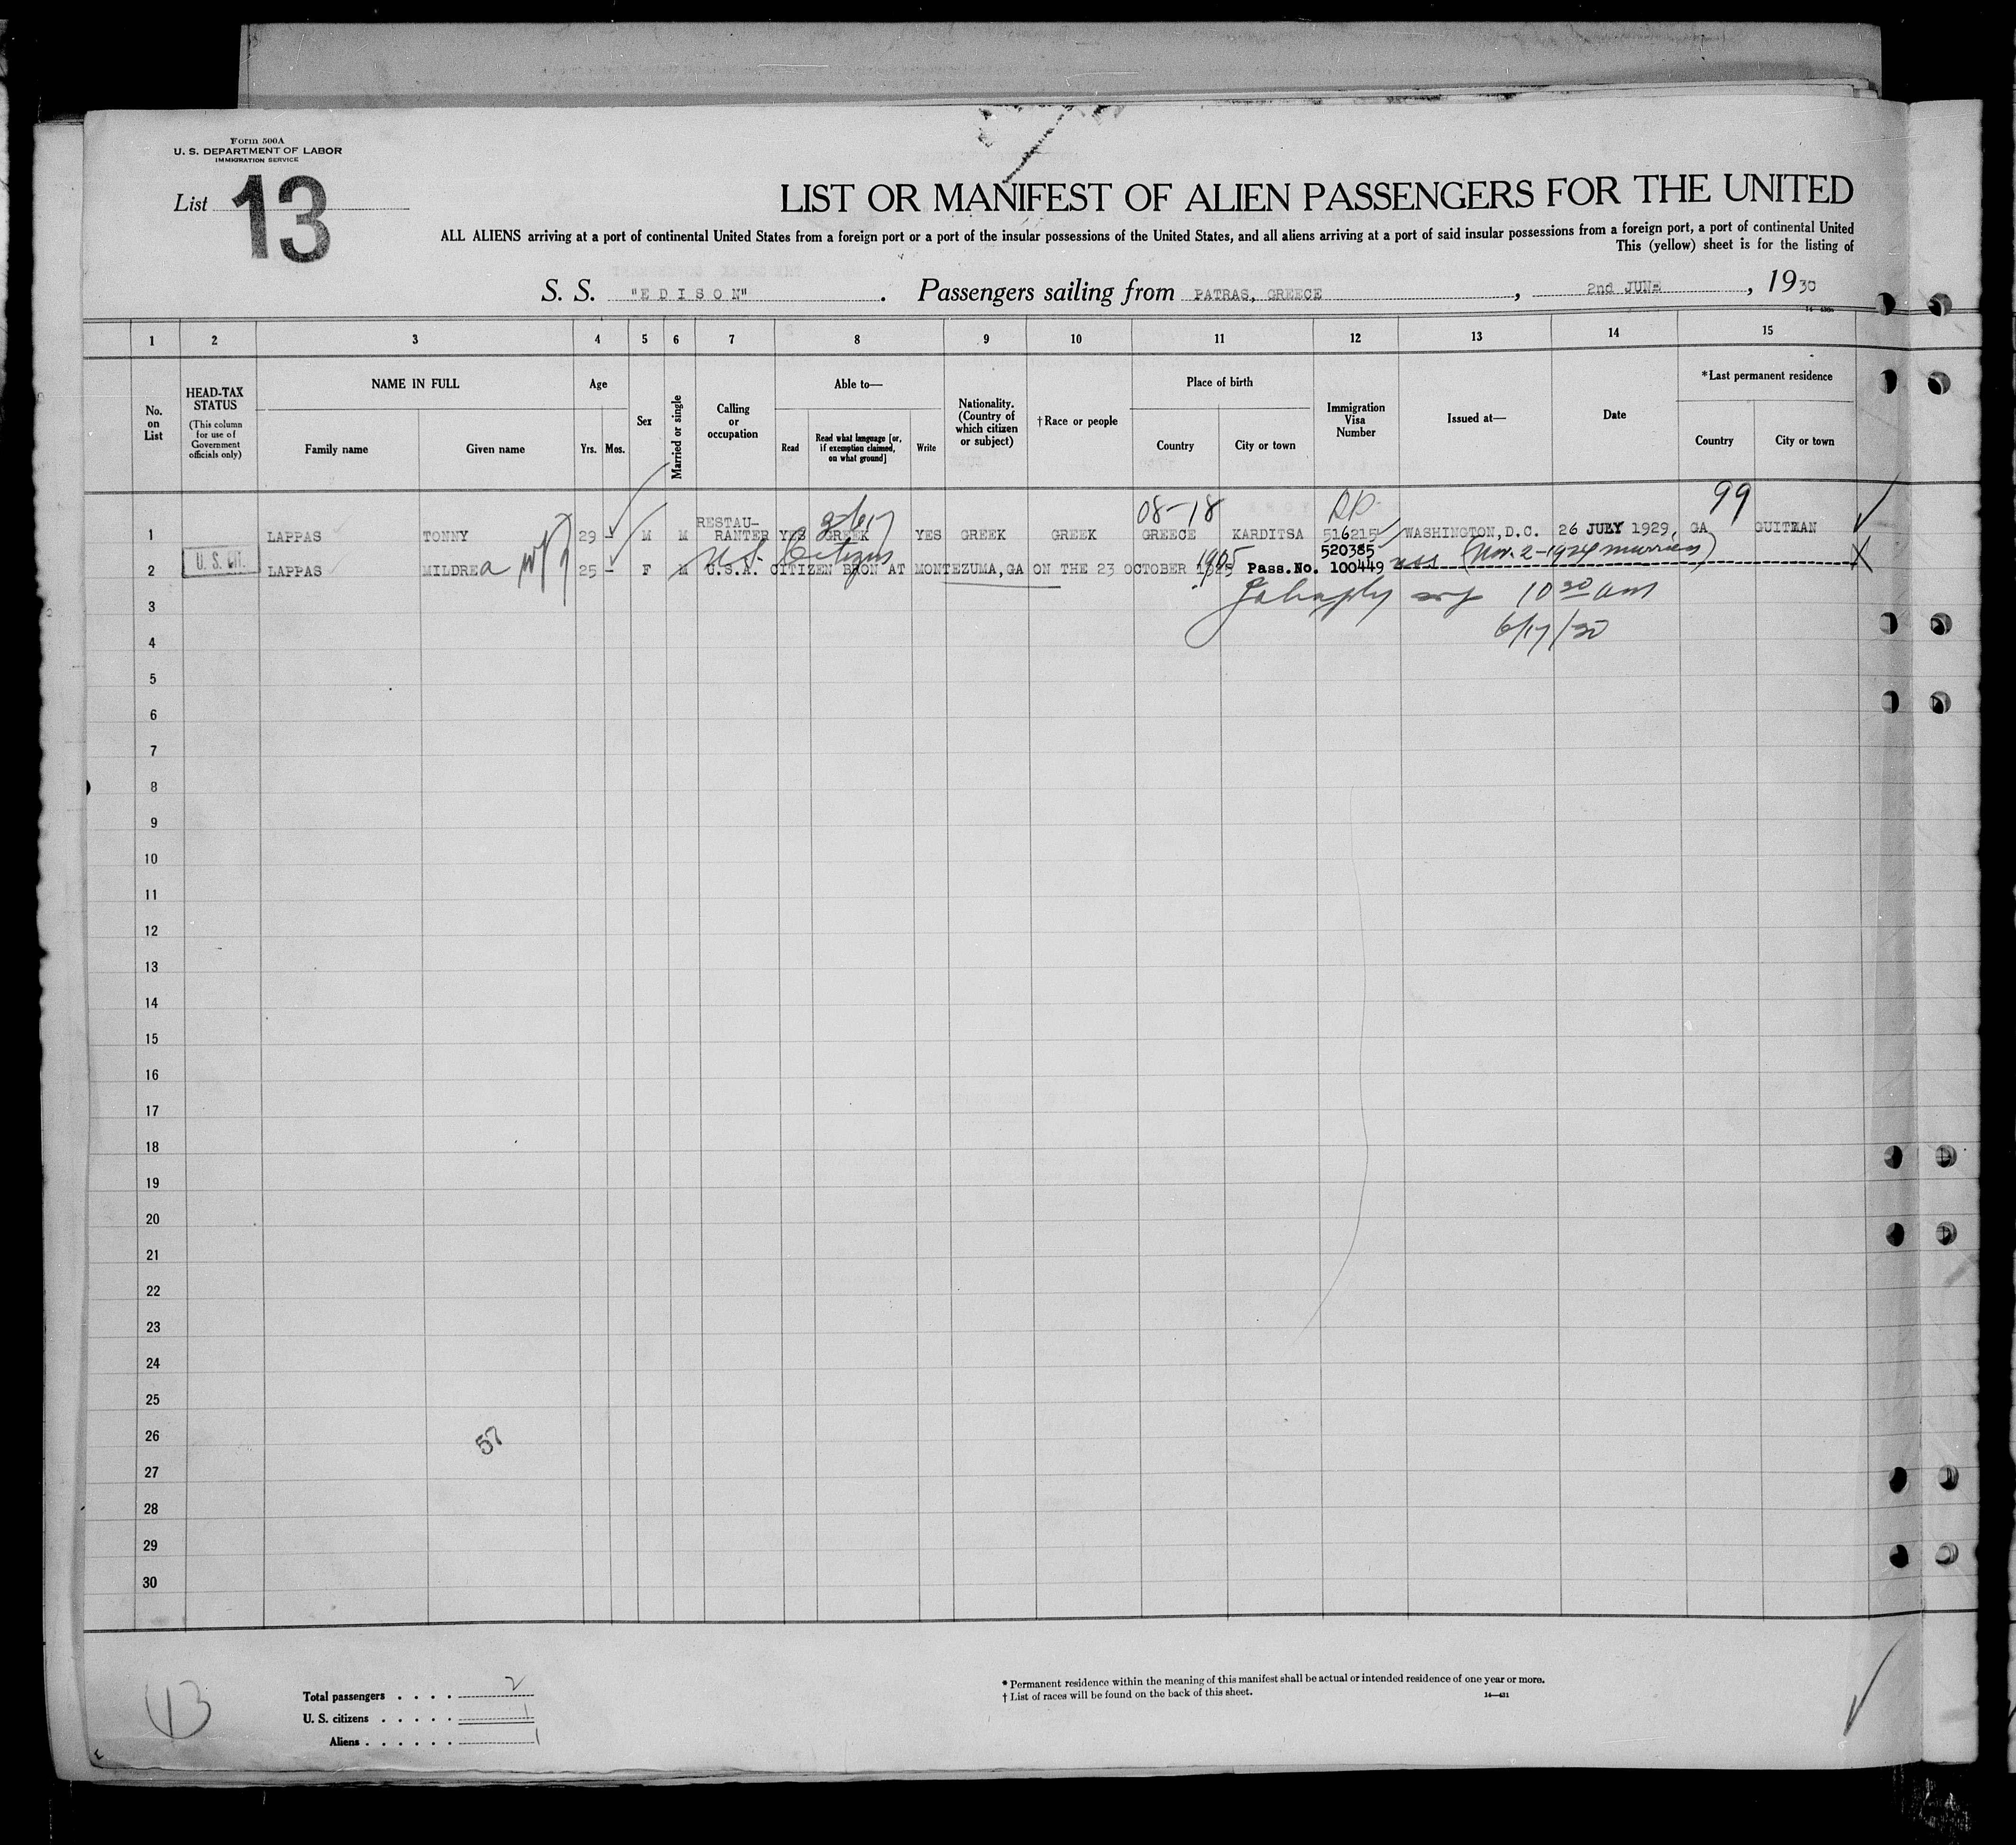 Form 500A
U. S. DEPARTMENT OF LABOR
IMMIGRATION SERVICE
List 13
LIST OR MANIFEST OF ALIEN PASSENGERS FOR THE UNITED
ALL ALIENS arriving at a port of continental United States from a foreign port or a port of the insular possessions of the United States, and all aliens arriving at a port of said insular possessions from a foreign port, a port of continental United
This (yellow) sheet is for the listing of
S. S. "E D I S O N" . Passengers sailing from PATRAS, GREECE , 2nd JUNE , 1930
1 2 3 4 5 6 7 8 9 10 11 12 13 14 15
No. on List
HEAD-TAX STATUS
(This column for use of Government officials only)
NAME IN FULL
Family name Given name
Age
Yrs. Mos.
Sex
Married or single
Calling or occupation
Able to—
Read Read what language [or, if exemption claimed, on what ground] Write
Nationality. (Country of which citizen or subject)
†Race or people
Place of birth
Country City or town
Immigration Visa Number
Issued at—
Date
*Last permanent residence
Country City or town
08-18 99
1 LAPPAS TONNY 29 - M M RESTAU-RANTER YES GREEK YES GREEK GREEK GREECE KARDITSA 516215 WASHINGTON,D.C. 26 JULY 1929, GA, QUITMAN
520385
U. S. Citizen 1905 (Nov. 2-1924 married)
2 U. S. CIT. LAPPAS MILDREd 25 - F M U.S.A. CITIZEN BRON AT MONTEZUMA,GA ON THE 23 OCTOBER Pass.No. 100449
10 30 am
3
6/17/30
4
5
6
7
8
9
10
11
12
13
14
15
16
17
18
19
20
21
22
23
24
25
26
57
27
28
29
30
13
Total passengers . . . . 2
U. S. citizens . . . . . 1
Aliens . . . . . . 1
* Permanent residence within the meaning of this manifest shall be actual or intended residence of one year or more.
† List of races will be found on the back of this sheet. 14—431